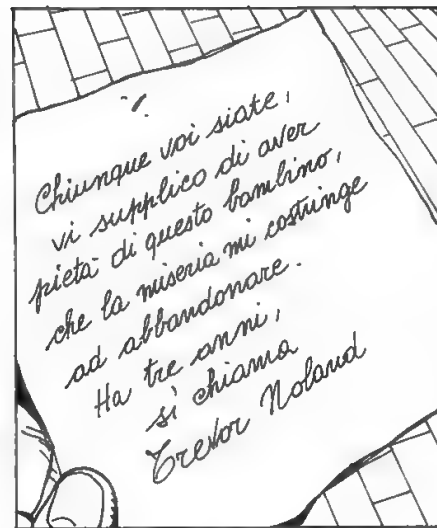 Chiunque voi siate,
vi supplico di aver
pietà di questo bambino,
che la miseria mi costringe
ad abbandonare.
Ha tre anni,
si chiama
Trevor Noland